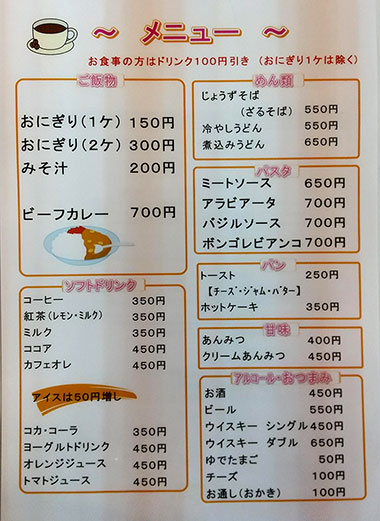 ～ メニュー ～
お食事の方はドリンク100円引き (おにぎり1ケは除く)
ご飯物
おにぎり(1ケ) 150円
おにぎり(2ケ) 300円
みそ汁 200円
ビーフカレー 700円
ソフトドリンク
コーヒー 350円
紅茶(レモン・ミルク) 350円
ミルク 350円
ココア 450円
カフェオレ 450円
アイスは50円増し
コカ・コーラ 350円
ヨーグルトドリンク 450円
オレンジジュース 450円
トマトジュース 450円
めん類
じょうずそば
(ざるそば) 550円
冷やしうどん 550円
煮込みうどん 650円
パスタ
ミートソース 650円
アラビアータ 700円
バジルソース 700円
ボンゴレビアンコ 700円
パン
トースト 250円
【チーズ・ジャム・バター】
ホットケーキ 350円
甘味
あんみつ 400円
クリームあんみつ 450円
アルコール・おつまみ
お酒 450円
ビール 550円
ウイスキー シングル 450円
ウイスキー ダブル 650円
ゆでたまご 50円
チーズ 100円
お通し(おかき) 100円